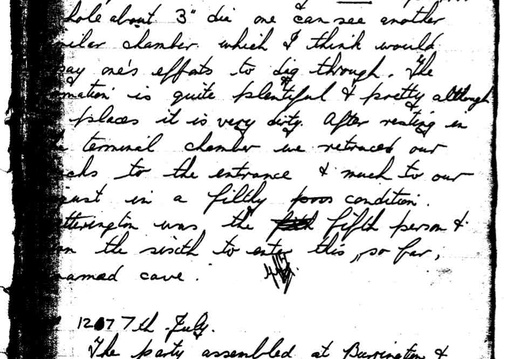 hole about 3" dia one can see another
milar chamber which I think would
pay one's efforts to dig through. The
rmation is quite plentiful & pretty although
places it is very dirty. After resting in
terminal chamber we retraced our
cks to the entrance & much to our
gust in a filthy poor condition.
therington was the fifth person &
on the sixth to enter this, so far,
named cave.
1207 7th July.
The party assembled at Barrington &